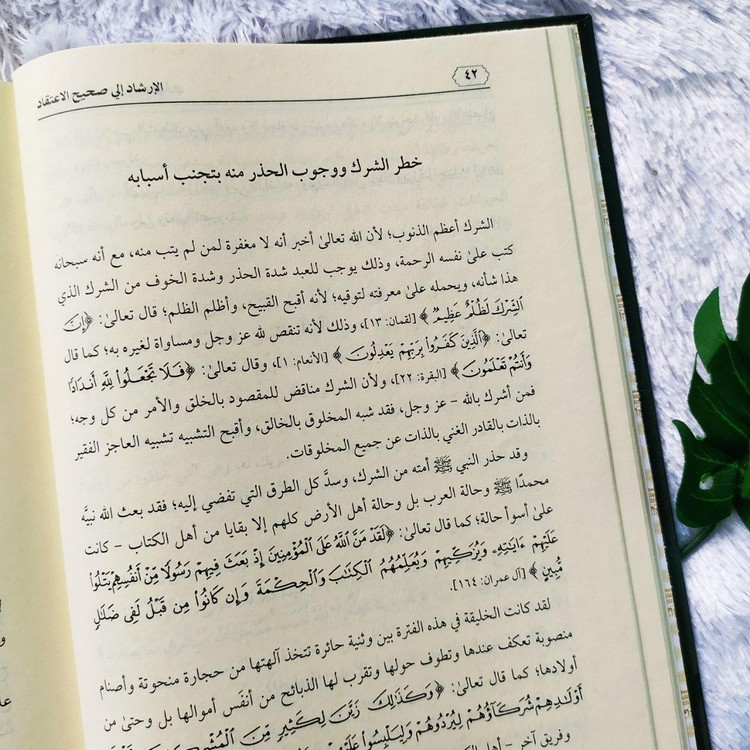 ٤٢
الإرشاد إلى صحيح الاعتقاد
خطر الشرك ووجوب الحذر منه بتجنب أسبابه
الشرك أعظم الذنوب؛ لأن الله تعالىٰ أخبر أنه لا مغفرة لمن لم يتب منه، مع أنه سبحانه
كتب علىٰ نفسه الرحمة، وذلك يوجب للعبد شدة الحذر وشدة الخوف من الشرك الذي
هذا شأنه، ويحمله علىٰ معرفته لتوقيه؛ لأنه أقبح القبيح، وأظلم الظلم؛ قال تعالىٰ: ﴿إِنَّ
الشِّرْكَ لَظُلْمٌ عَظِيمٌ﴾ [لقمان: ١٣]، وذلك لأنه تنقص لله عز وجل ومساواة لغيره به؛ كما قال
تعالىٰ: ﴿الَّذِينَ كَفَرُوا بِرَبِّهِمْ يَعْدِلُونَ﴾ [الأنعام: ١]، وقال تعالىٰ: ﴿فَلَا تَجْعَلُوا لِلَّهِ أَندَادًا
وَأَنتُمْ تَعْلَمُونَ﴾ [البقرة: ٢٢]، ولأن الشرك مناقض للمقصود بالخلق والأمر من كل وجه؛
فمن أشرك بالله - عز وجل، فقد شبه المخلوق بالخالق، وأقبح التشبيه تشبيه العاجز الفقير
بالذات بالقادر الغني بالذات عن جميع المخلوقات.
وقد حذر النبي ﷺ أمته من الشرك، وسدَّ كل الطرق التي تفضي إليه؛ فقد بعث الله نبيَّه
محمدًا ﷺ وحالة العرب بل وحالة أهل الأرض كلهم إلا بقايا من أهل الكتاب - كانت
علىٰ أسوأ حالة؛ كما قال تعالىٰ: ﴿لَقَدْ مَنَّ اللَّهُ عَلَى الْمُؤْمِنِينَ إِذْ بَعَثَ فِيهِمْ رَسُولًا مِّنْ أَنفُسِهِمْ يَتْلُوا
عَلَيْهِمْ ءَايَاتِهِ وَيُزَكِّيهِمْ وَيُعَلِّمُهُمُ الْكِتَابَ وَالْحِكْمَةَ وَإِن كَانُوا مِن قَبْلُ لَفِي ضَلَالٍ
مُّبِينٍ﴾ [آل عمران: ١٦٤].
لقد كانت الخليقة في هذه الفترة بين وثنية حائرة تتخذ آلهتها من حجارة منحوتة وأصنام
منصوبة تعكف عندها وتطوف حولها وتقرب لها الذبائح من أنفَس أموالها بل وحتىٰ من
أولادها؛ كما قال تعالىٰ: ﴿وَكَذَٰلِكَ زَيَّنَ لِكَثِيرٍ مِّنَ الْمُشْرِكِينَ قَتْلَ
أَوْلَادِهِمْ شُرَكَاؤُهُمْ لِيُرْدُوهُمْ وَلِيَلْبِسُوا عَلَيْهِمْ
وفريق آخر - أهل